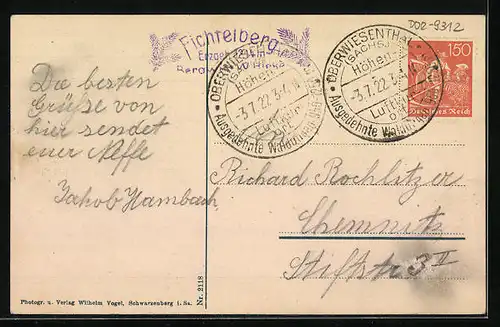 DO2-9312
Fichtelberg
OBERWIESENTHAL
(SACHS.)
Höhen
-3.7.22.3-4.N
Luftkur
ort
Ausgedehnte Waldungen
OBERWIESENTHAL
(SACHS.)
Höhen
-3.7.22.3-4.N
Luftkur
ort
Ausgedehnte Waldungen
150
Deutsches Reich
Die besten
Grüße von
hier sendet
euer Neffe
Jakob Hambach
Richard Rochlitzer
Chemnitz
Stiftstr. 3 II
Nr. 2118
Photogr. u. Verlag Wilhelm Vogel, Schwarzenberg i. Sa.